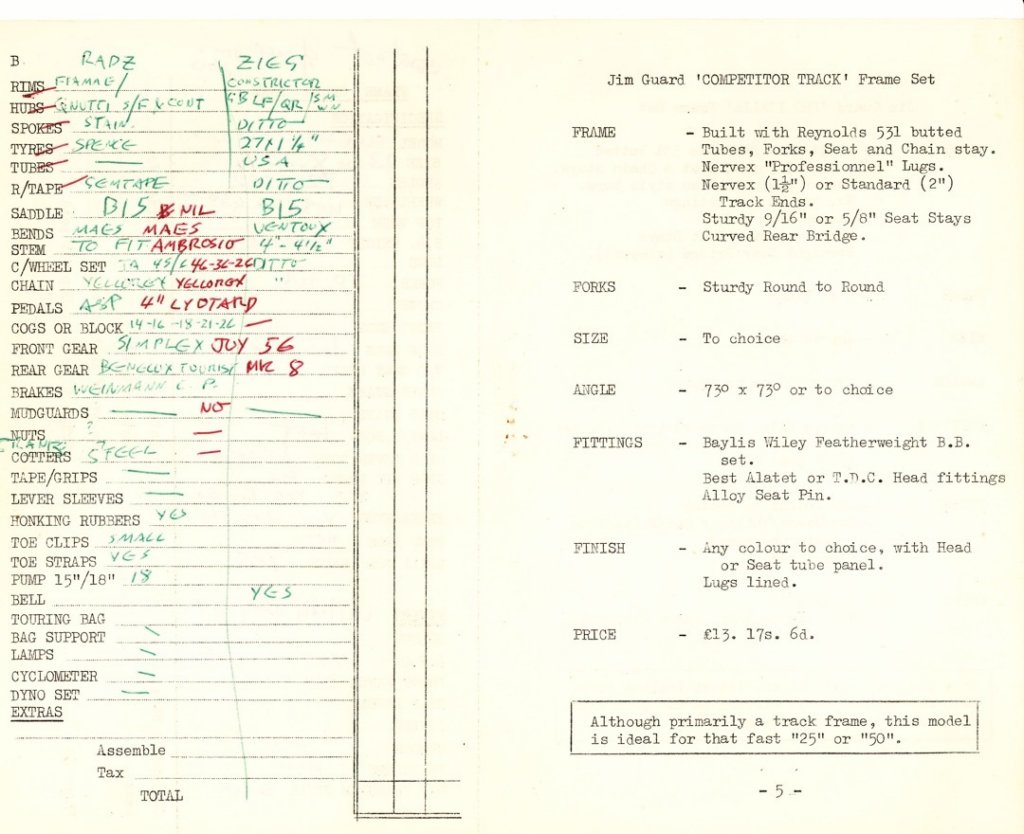 B RADZ ZIEG
RIMS FIAMME/ CONSTRICTOR
HUBS S/F & CONT GB LF/QR/SM
SPOKES STAIN. DITTO
TYRES SPENCE 27 1 1/4"
TUBES — USA
R/TAPE SEMTAPE DITTO
SADDLE B15 NIL B15
BENDS MAES MAES VENTOUX
STEM TO FIT AMBROSIO 4" - 4½"
C/WHEEL SET TA 46-36-26 DITTO
CHAIN YELLOREX YELLOREX "
PEDALS 4" LYOTARD
COGS OR BLOCK 14-16-18-21-26 —
FRONT GEAR SIMPLEX JUY 56
REAR GEAR BENELUX TOURIST MK 8
BRAKES WEINMANN C. P.
MUDGUARDS — NO —
NUTS ? —
COTTERS ? STEEL —
TAPE/GRIPS —
LEVER SLEEVES —
HONKING RUBBERS YES
TOE CLIPS SMALL
TOE STRAPS YES
PUMP 15"/18" 18
BELL YES
TOURING BAG
BAG SUPPORT
LAMPS —
CYCLOMETER —
DYNO SET —
EXTRAS
Assemble
Tax
TOTAL
Jim Guard 'COMPETITOR TRACK' Frame Set
FRAME - Built with Reynolds 531 butted
Tubes, Forks, Seat and Chain stay.
Nervex "Professionnel" Lugs.
Nervex (1½") or Standard (2")
Track Ends.
Sturdy 9/16" or 5/8" Seat Stays
Curved Rear Bridge.
FORKS - Sturdy Round to Round
SIZE - To choice
ANGLE - 73° x 73° or to choice
FITTINGS - Baylis Wiley Featherweight B.B.
set.
Best Alatet or T.D.C. Head fittings
Alloy Seat Pin.
FINISH - Any colour to choice, with Head
or Seat tube panel.
Lugs lined.
PRICE - £13. 17s. 6d.
Although primarily a track frame, this model
is ideal for that fast "25" or "50".
- 5 -